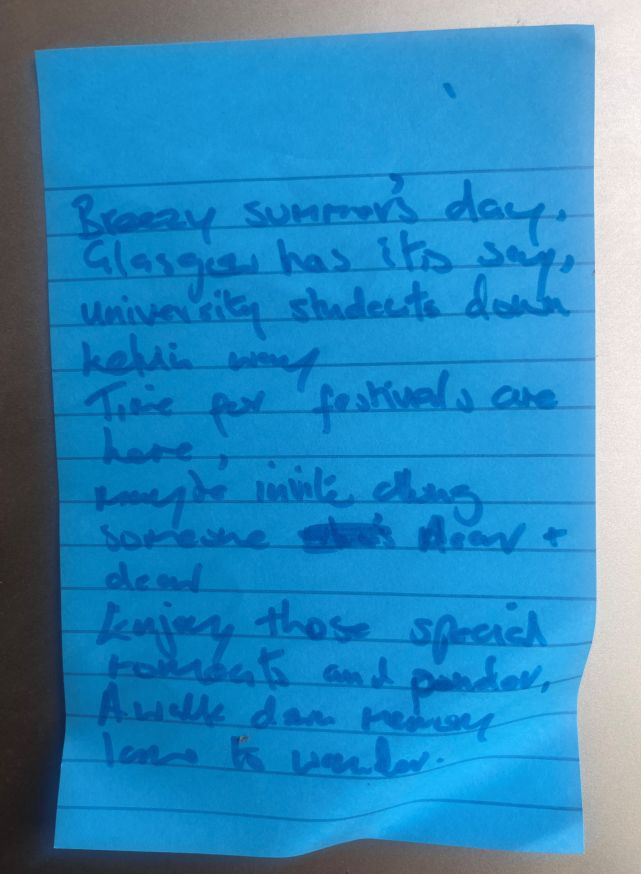 Breezy summer's day,
Glasgow has its say,
university students down
kelvin way
Time for festivals are
here,
maybe invite along
someone dear +
dear
Enjoy those special
moments and ponder,
A walk down memory
lane to wander.